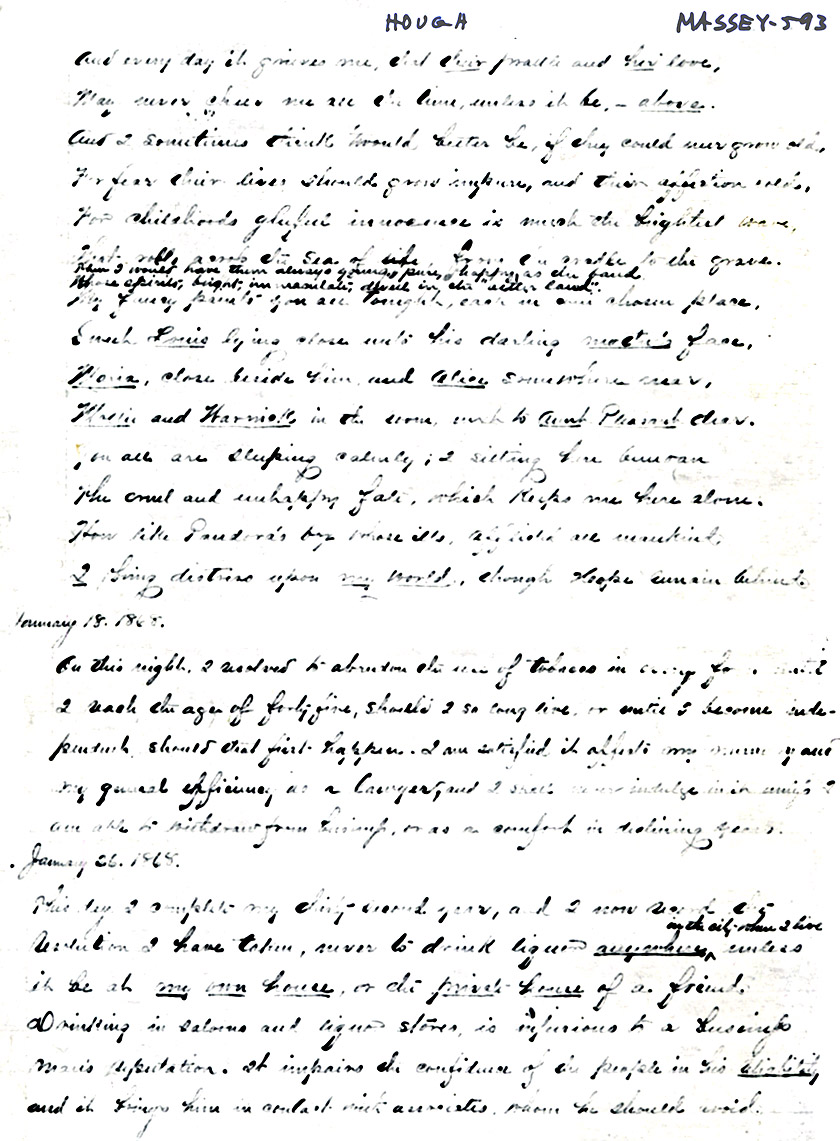 HOUGH MASSEY-593
And every day it grieves me, that their prattle and her love,
May never cheer me all the time, unless it be, - above.
And I sometimes think 'twould better be, if they could never grow old,
For fear their lives should grow impure, and their affection cold,
For childhoods gleeful innocence is much the brightest wave,
That rolls across the Sea of life, from the cradle to the grave.
Then I would have them always young, pure, happy as the band
Whose spirits, bright, immaculate, dwell in the "better land".
My fancy paints you all tonight, each in own chosen place,
I see Louis lying close unto his darling mother's face,
Maria, close beside him, and Alice somewhere near,
and Warnick in the room, next to Aunt dear.
You all are sleeping calmly; I sitting here bemoan
The cruel and unhappy fate, which keeps me here alone.
How like Pandora's box whose ills, afflicted all mankind,
I bring distress upon my world, though Hope remain behind
January 18. 1868.
On this night, I resolved to abandon the use of tobacco in every form until
I reach the age of forty five, should I so long live, or until I become inde-
pendent, should that first happen. I am satisfied it affects my memory and
my general efficiency as a lawyer, and I shall never indulge in it unless I
am able to withdraw from business, or as a comfort in declining years.
January 26. 1868.
This day I complete my thirty second year, and I now record the
in the city where I live
resolution I have taken, never to drink liquor anywhere, unless
it be at my own house, or the private house of a friend.
Drinking in saloons and liquor stores, is injurious to a business
man's reputation. It impairs the confidence of the people in his
and it brings him in contact with associates, whom he should avoid.